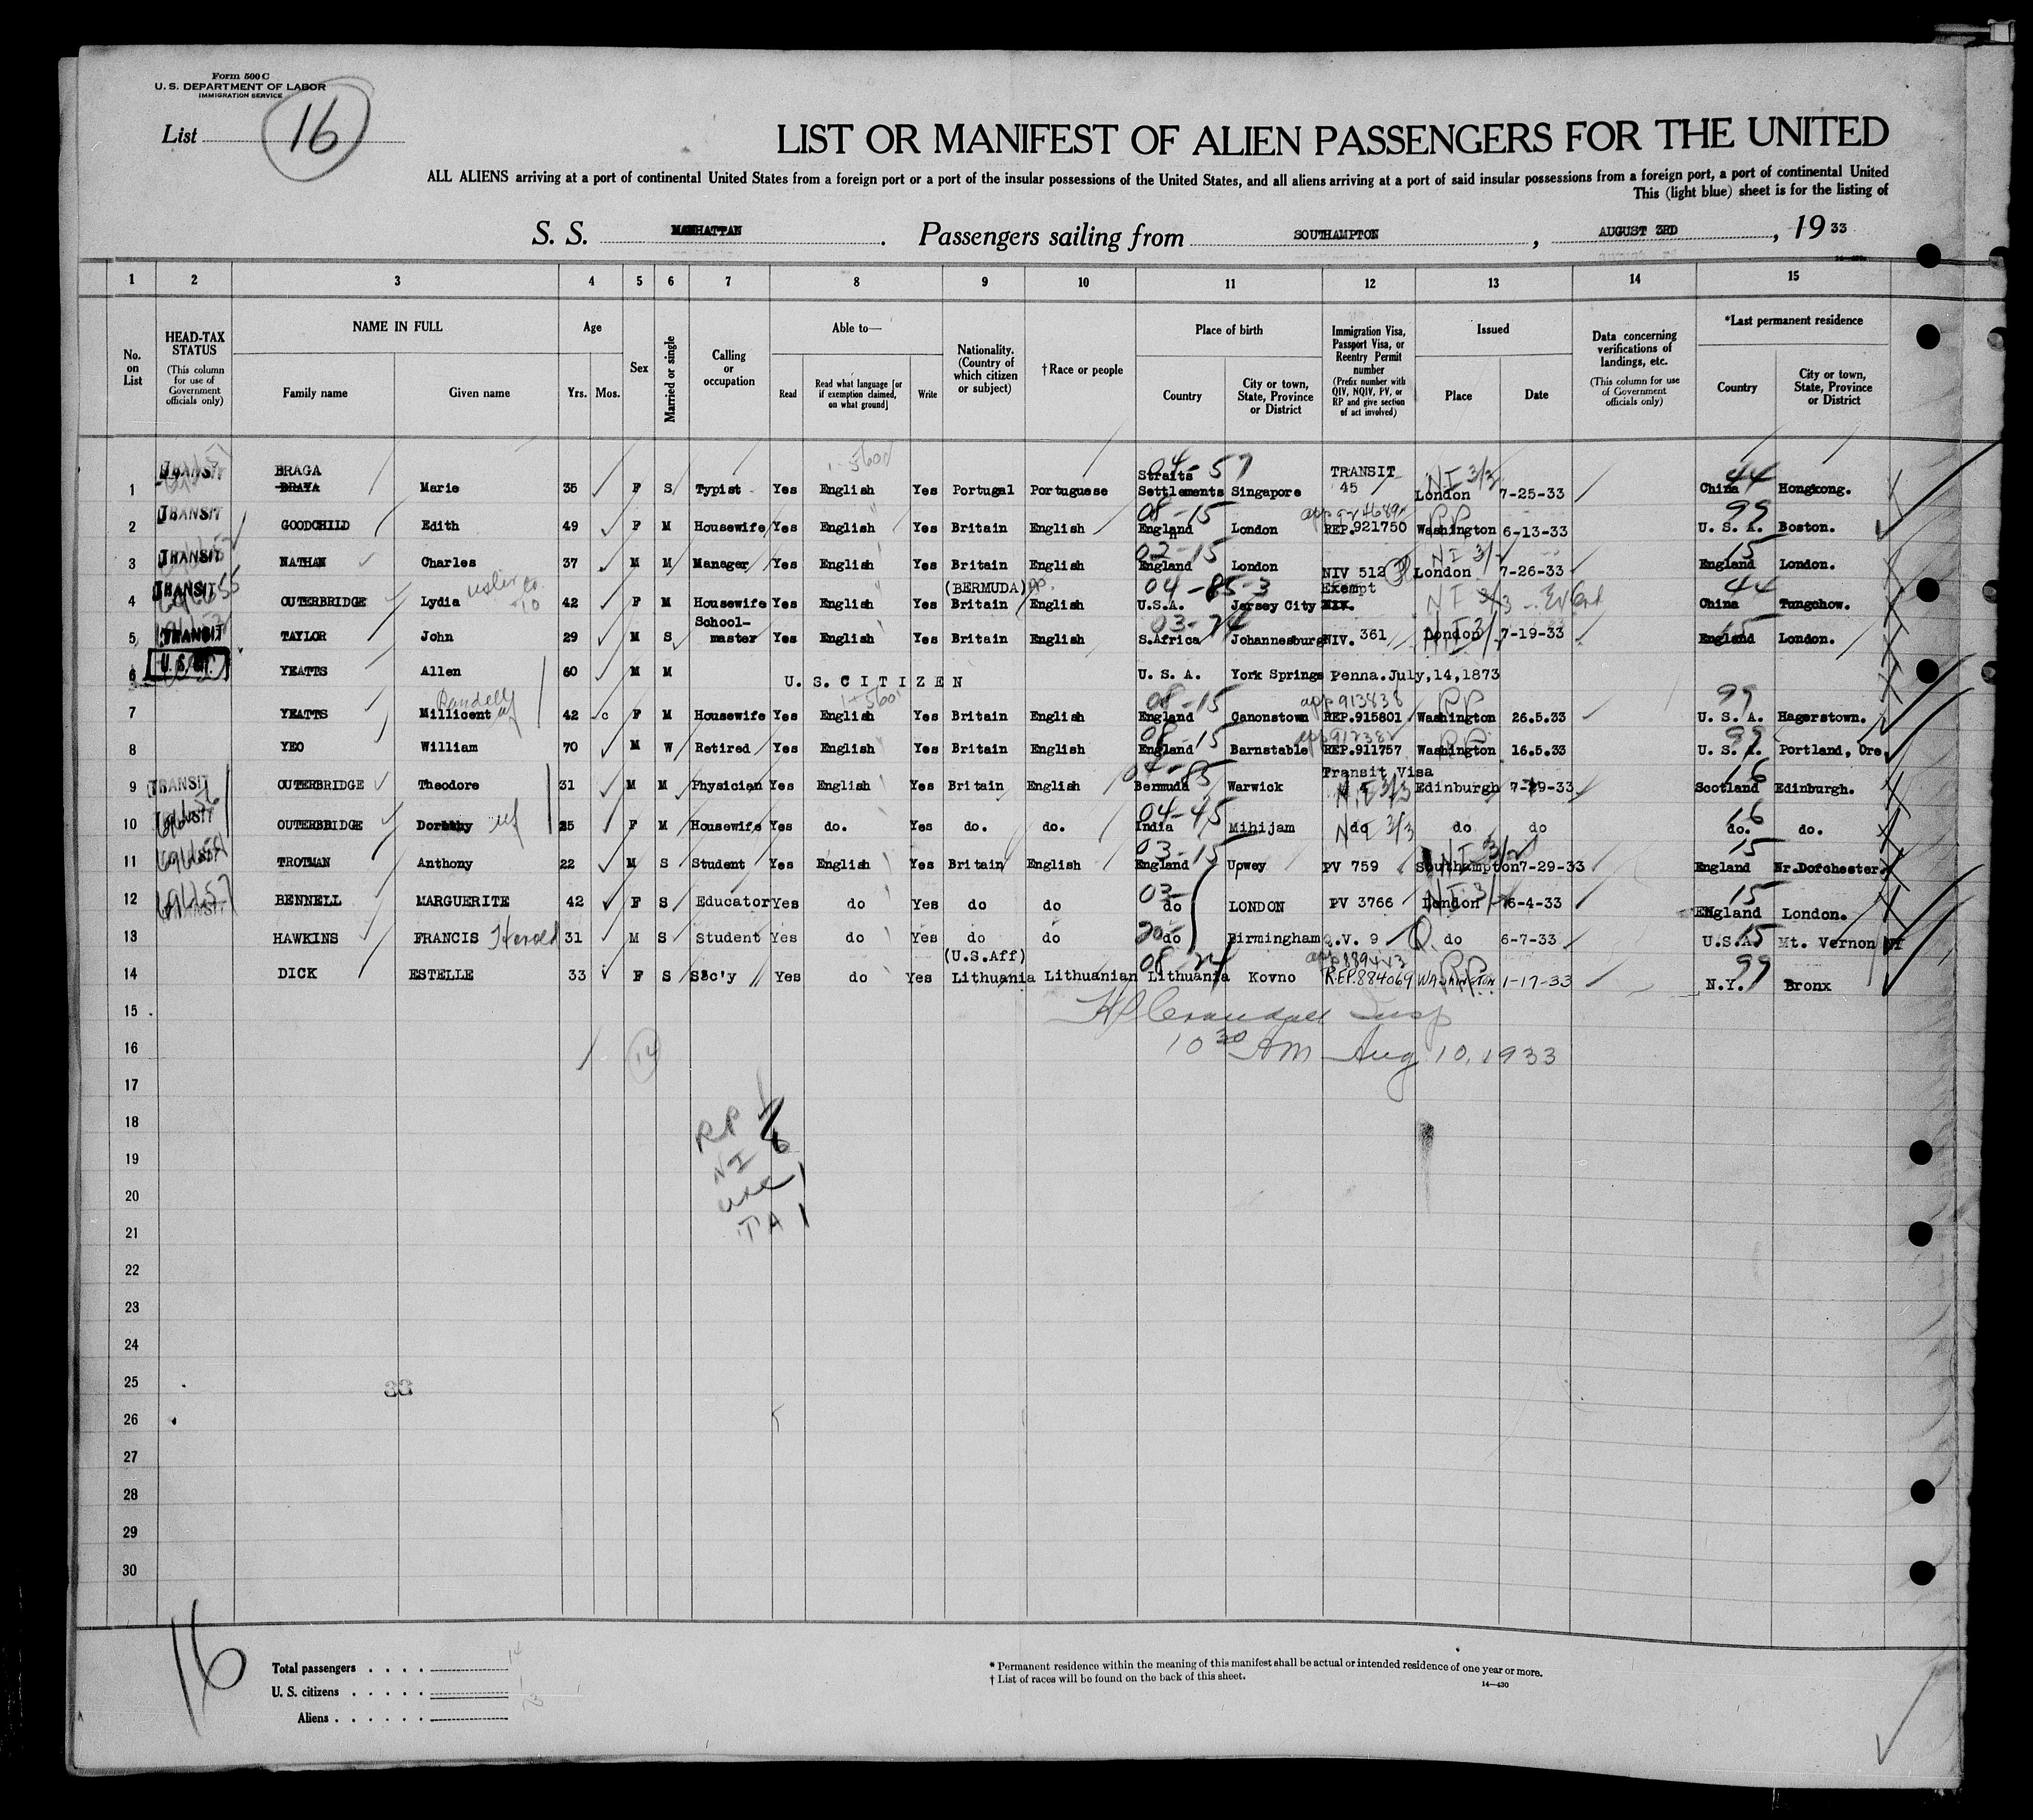 Form 500 C
U. S. DEPARTMENT OF LABOR
IMMIGRATION SERVICE
List 16
LIST OR MANIFEST OF ALIEN PASSENGERS FOR THE UNITED
ALL ALIENS arriving at a port of continental United States from a foreign port or a port of the insular possessions of the United States, and all aliens arriving at a port of said insular possessions from a foreign port, a port of continental United
This (light blue) sheet is for the listing of
S. S. MANHATTAN. Passengers sailing from SOUTHAMPTON, AUGUST 3RD, 1933
1 2 3 4 5 6 7 8 9 10 11 12 13 14 15
No. on List
HEAD-TAX STATUS (This column for use of Government officials only)
NAME IN FULL Family name Given name
Age Yrs. Mos.
Sex
Married or single
Calling or occupation
Able to— Read Read what language [or if exemption claimed, on what ground] Write
Nationality. (Country of which citizen or subject)
†Race or people
Place of birth Country City or town, State, Province or District
Immigration Visa, Passport Visa, or Reentry Permit number (Prefix number with QIV, NQIV, PV, or RP and give section of act involved)
Issued Place Date
Data concerning verifications of landings, etc. (This column for use of Government officials only)
*Last permanent residence Country City or town, State, Province or District
TRANSIT BRAGA 04-57 Straits TRANSIT NI 3/3 44
1 BRAYA Marie 35 F S Typist Yes English Yes Portugal Portuguese Settlements Singapore 45 London 7-25-33 China Hongkong.
TRANSIT 08-15 RP 99
2 GOODCHILD Edith 49 F M Housewife Yes English Yes Britain English England London REP.921750 Washington 6-13-33 U. S. A. Boston.
TRANSIT 15
3 NATHAN Charles 37 M M Manager Yes English Yes Britain English England London NIV 512 London 7-26-33 England London.
TRANSIT (BERMUDA) 04-85-3 Exempt 44
4 OUTERBRIDGE Lydia 42 F M Housewife Yes English Yes Britain English U.S.A. Jersey City NIV. NI 3/3 China Tungchow.
School- 15
5 TRANSIT TAYLOR John 29 M S master Yes English Yes Britain English S.Africa Johannesburg NIV. 361 London 7-19-33 England London.
6 U.S.C. YEATTS Allen 60 M M U. S. CITIZEN U. S. A. York Springs Penna. July,14,1873
08-15 app 913838 RP 99
7 YEATTS Millicent wf 42 F M Housewife Yes English Yes Britain English England Canonstown REP.915801 Washington 26.5.33 U. S. A. Hagerstown.
08-15 RP 99
8 YEO William 70 M W Retired Yes English Yes Britain English England Barnstable REP.911757 Washington 16.5.33 U. S. A. Portland, Ore.
04-85 Transit Visa 16
9 TRANSIT OUTERBRIDGE Theodore 31 M M Physician Yes English Yes Britain English Bermuda Warwick NI 3/3 Edinburgh 7-29-33 Scotland Edinburgh.
04-45 16
10 TRANSIT OUTERBRIDGE Dorothy wf 25 F M Housewife Yes do. Yes do. do. India Mihijam do NI 3/3 do do do. do.
03-15 NI 3/2 15
11 TROTMAN Anthony 22 M S Student Yes English Yes Britain English England Upwey PV 759 Southampton 7-29-33 England Nr.Dorchester.
03- 15
12 TRANSIT BENNELL MARGUERITE 42 F S Educator Yes do Yes do do do LONDON PV 3766 London 6-4-33 England London.
15
13 HAWKINS FRANCIS Harold 31 M S Student Yes do Yes do do do Birmingham Q.V. 9 do 6-7-33 U.S.A. Mt. Vernon NY
(U.S.Aff) 08-24 RP 99
14 DICK ESTELLE 33 F S Sec'y Yes do Yes Lithuania Lithuanian Lithuania Kovno REP.884069 Washington 1-17-33 N.Y. Bronx
15
Crandall Insp
16 14 10 30 AM Aug 10, 1933
17
18 RP
19 NI 6
20
21 TA 1
22
23
24
25
26
27
28
29
30
16
Total passengers 14
U. S. citizens 1
Aliens 13
* Permanent residence within the meaning of this manifest shall be actual or intended residence of one year or more.
† List of races will be found on the back of this sheet.
14—430